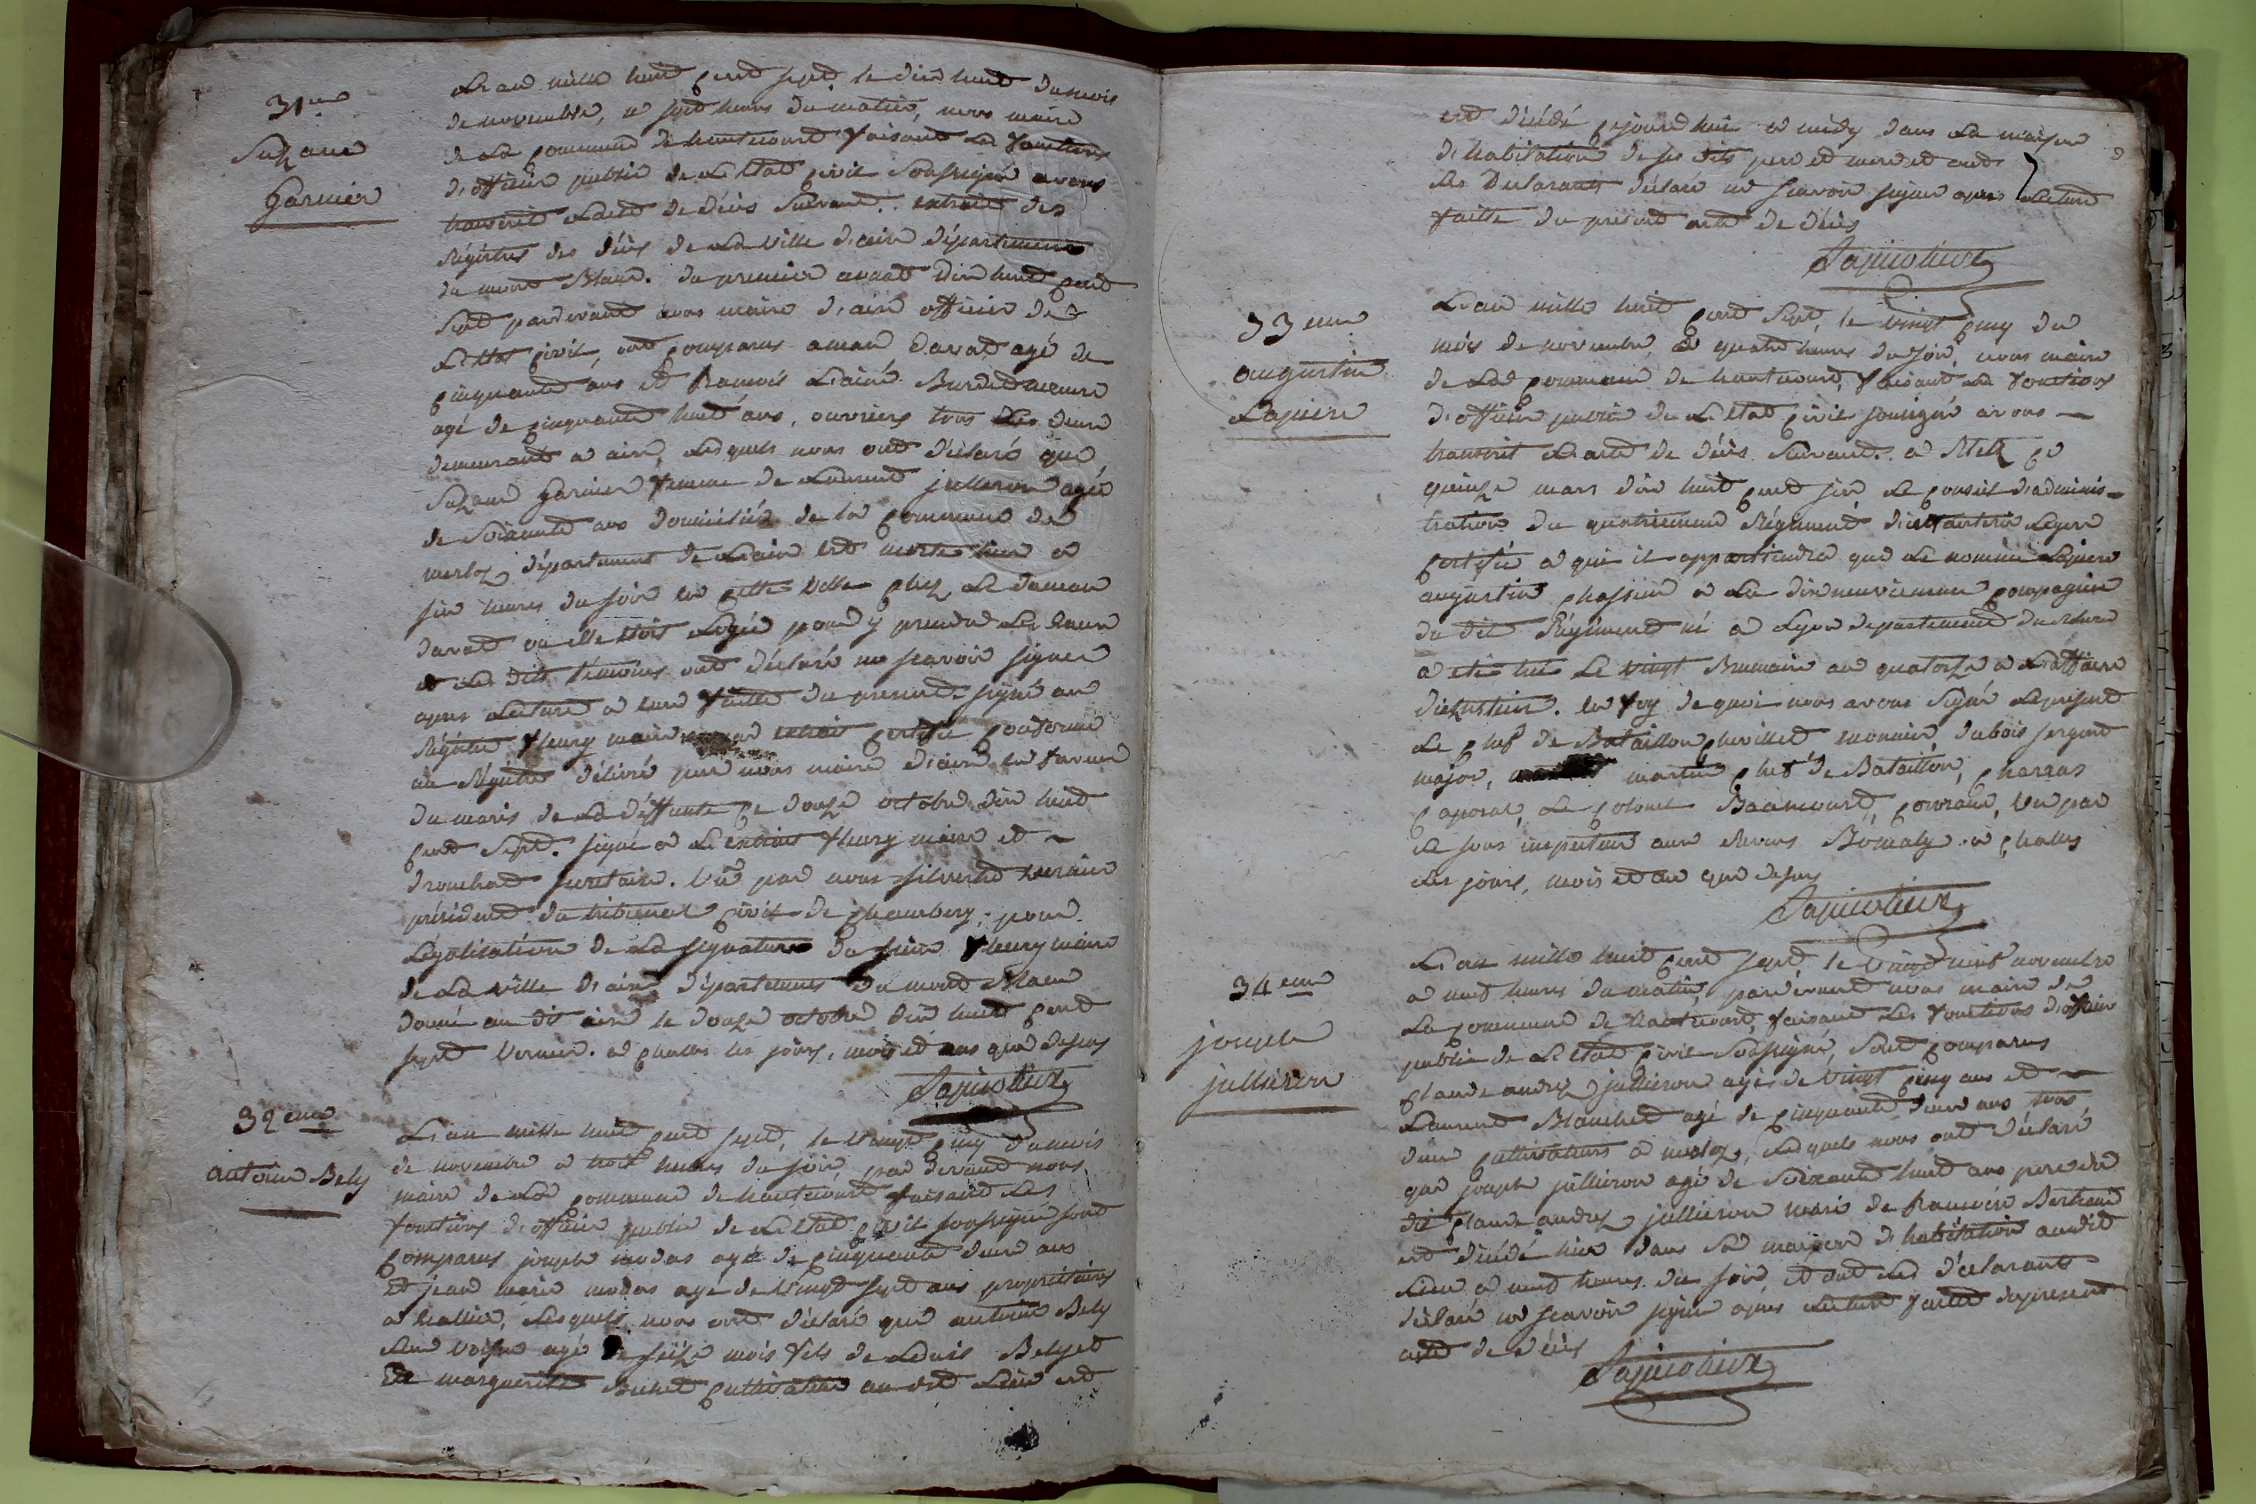 31eme
Suzane
Garnier
L'an mille huit cent sept le dix huit du mois
de novembre, a sept heures du matin, nous maire
de la commune de hautecourt faisant les fonctions
d'officier public de l'Etat civil soussigné avons
transcrit l'acte de décès suivant. extrait des
Régistres des décès de la ville d'aix département
du mont Blanc. du premier août dix huit cent
sept pardevant nous maire d'aix officier de
l'etat civil, ont comparus aman davat agé de
cinquante ans et francois L'ainé Burdet
agé de cinquante huit ans, ouvriers tous les deux
demeurant a aix, lesquels nous ont déclaré que
Suzane Garnier femme de Laurent jullieron agée
de soixante ans domiciliée de la commune de
merloz département de L'ain est morte hier a
six heures du soir en cette ville chez le
davat ou elle etoit logée pour y prendre les eaux
et les dits témoins ont déclaré ne scavoir signer
apres lecture a eux faitte du present. signé au
Régistre fleury maire extrait certifié conforme
au Régistre délivré par nous maire d'aix en faveur
du maris de la déffunte ce douze octobre dix huit
cent sept. signé a L'extrait fleury maire et
secretaire. Vu par nous
président du tribunal civil de chambery, pour
légalisation de la signature du sieur fleury maire
de la ville d'aix département du mont Blanc
donné au dit aix le douze octobre dix huit cent
sept vernier. a challes les jours, mois et ans que dessus
32eme
antoine Bely
L'an mille huit cent sept, le vingt cinq du mois
de novembre a trois heures du soir par devant nous
maire de la commune de hautecourt faisant les
fonctions d'officier public de L'etat civil soussigné sont
comparus joseph modas agé de cinquante deux ans
et jean marie modas agé de vingt sept ans propriétaires
a hallier, lesquels nous ont déclaré que antoine Bely
leur voisin agé de seize mois fils de Louis Bely et
de marguerite cultivateur au dit lieu est
est décédé cejourd'hui a midy dans la maison
d'habitation de ses dits pere et mere et ont
les Declarants déclaré ne scavoir signer apres lecture
faitte du present acte de décès
33eme
augustin
Lapiere
L'an mille huit cent sept, le vingt cinq du
mois de novembre, a quatre heures du soir, nous maire
de la commune de hautecourt, faisant les fonctions
d'officier public de L'etat civil soussigné avons
transcrit L'acte de décès suivant. a Metz ce
quinze mars dix huit cent six le conseil d'adminis-
tration du quatrieme Régiment d'infanterie Legere
certifie a qui il appartiendra que le nommé Lapiere
augustin chasseur a la dixneuvieme compagnie
du dit Régiment né a Lyon departement du Rhone
a été tué le vingt Brumaire an quatorze a L'affaire
d'. en foy de quoi nous avons signé le présent
le chef de Bataillon chevillet monnier dubois sergent
major, martin chef de Bataillon, charras
caporal, le colonel Bazancourt, Vu par
le sous inspecteur aux Revues a challes
les jours, mois et an que dessus
34eme
joseph
jullieron
L'an mille huit cent sept, le vingt neuf novembre
a neuf heures du matin, pardevant nous maire de
la commune de hautecourt, faisant les fonctions d'officier
public de L'etat civil soussigné, sont comparus
claude andré jullieron agé de vingt cinq ans et
Laurent Blanchet agé de cinquante deux ans tous
deux cultivateurs a merloz, lesquels nous ont déclaré
que joseph jullieron agé de soixante huit ans pere du
dit claude andré jullieron mari de francoise Bertrand
est décédé hier dans sa maison d'habitation au dit
lieu a neuf heures du soir, et ont les déclarants
déclaré ne scavoir signer apres lecture faitte du present
acte de décès